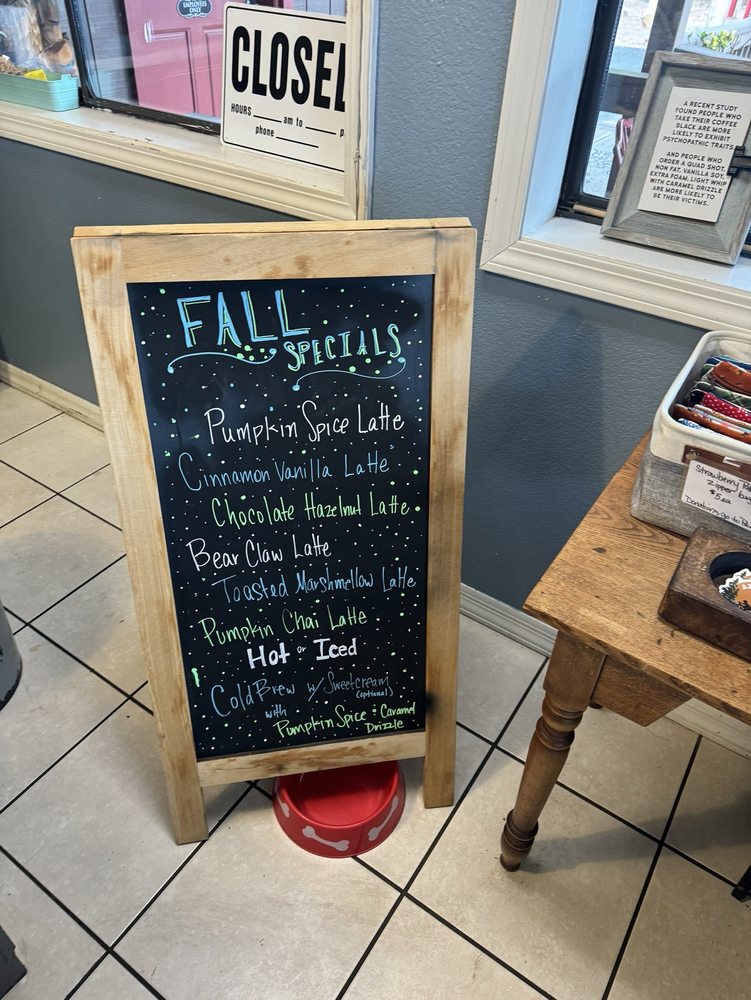 EMPLOYEES
ONLY
CLOSE
HOURS ___ am to ___ p
phone ___
A RECENT STUDY
FOUND PEOPLE WHO
TAKE THEIR COFFEE
BLACK ARE MORE
LIKELY TO EXHIBIT
PSYCHOPATHIC TRAITS
AND PEOPLE WHO
ORDER A QUAD SHOT,
NON FAT, VANILLA SOY,
EXTRA FOAM, LIGHT WHIP
WITH CARAMEL DRIZZLE
ARE MORE LIKELY TO
BE THEIR VICTIMS.
FALL
SPECIALS
Pumpkin Spice Latte
Cinnamon Vanilla Latte
Chocolate Hazelnut Latte
Bear Claw Latte
Toasted Marshmellow Latte
Pumpkin Chai Latte
Hot or Iced
Cold Brew w/ Sweetcream
(optional)
with Pumpkin Spice & Caramel
Drizzle
Strawberry
Zipper
$5 ea
Donations go to